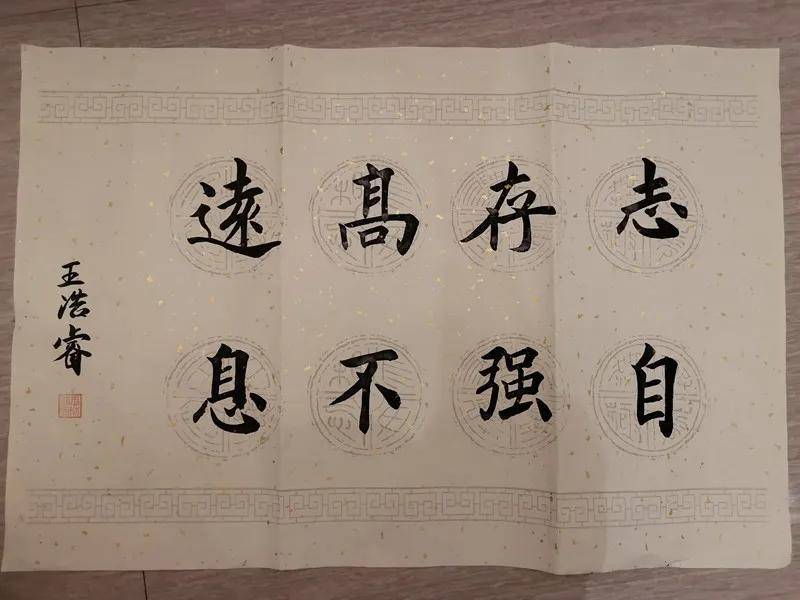 志存髙遠
自强不息
王浩睿